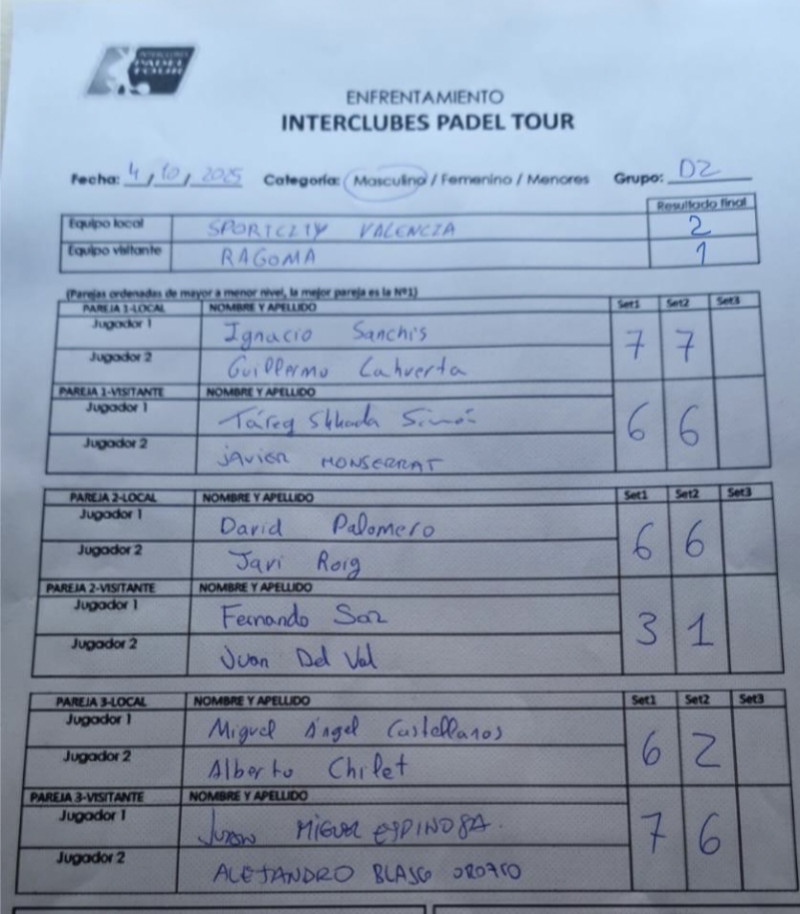 INTERCLUBES
PADEL
TOUR
ENFRENTAMIENTO
INTERCLUBES PADEL TOUR
Fecha: 4 / 10 / 2025 Categoría: Masculino / Femenino / Menores Grupo: D2
Resultado final
Equipo local SPORTCITY VALENCIA 2
Equipo visitante RAGOMA 1
(Parejas ordenadas de mayor a menor nivel, la mejor pareja es la Nº1)
PAREJA 1-LOCAL NOMBRE Y APELLIDO Set1 Set2 Set3
Jugador 1 Ignacio Sanchis 7 7
Jugador 2 Guillermo Cahuerta
PAREJA 1-VISITANTE NOMBRE Y APELLIDO
Jugador 1 Táreq Simón 6 6
Jugador 2 javier MONSERRAT
PAREJA 2-LOCAL NOMBRE Y APELLIDO Set1 Set2 Set3
Jugador 1 David Palomero 6 6
Jugador 2 Javi Roig
PAREJA 2-VISITANTE NOMBRE Y APELLIDO
Jugador 1 Fernando Saz 3 1
Jugador 2 Juan Del Val
PAREJA 3-LOCAL NOMBRE Y APELLIDO Set1 Set2 Set3
Jugador 1 Miguel Ángel Castellanos 6 2
Jugador 2 Alberto Chilet
PAREJA 3-VISITANTE NOMBRE Y APELLIDO
Jugador 1 Juan MIGUEL ESPINOSA. 7 6
Jugador 2 ALEJANDRO BLASCO OROZCO